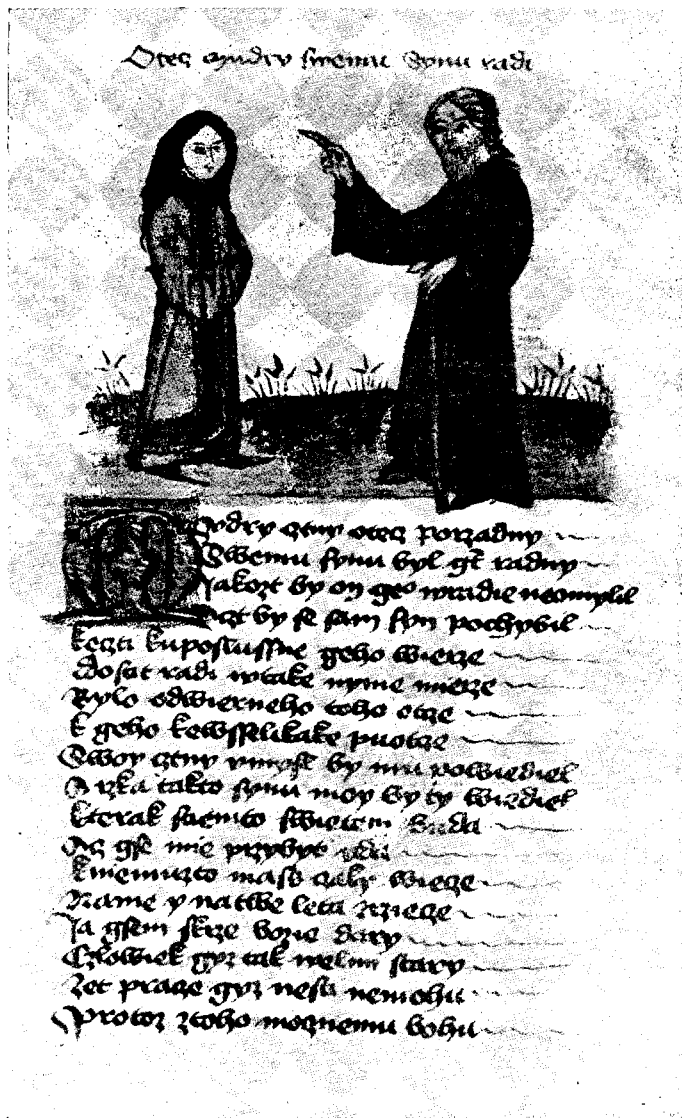 Otecz mudry swemu synu radi
Mudry cztny otecz porzadny
Swemu synu byl gt radny
Jakozt by on geo wradie neomylil
by se sam syn pochybil
keczti kuposlussne geho wierze
Dosat radi wtake nyme mierze
Bylo odwierneho toho otze
k geho kewsselikake puotze
Swoy cztny vmysl by mu powiediel
A rzka takto synu moy by ty wiediel
kterak sa tiemto swietem
gse me przybyt
kniemuzto mass czaly wiecze
Name y natwe leta
Ja gsem skrze bozie dary
Czlowiek gyz tak welmi stary
Zet pracze gyz nesti nemohu
Protoz ztoho mocznemu bohu